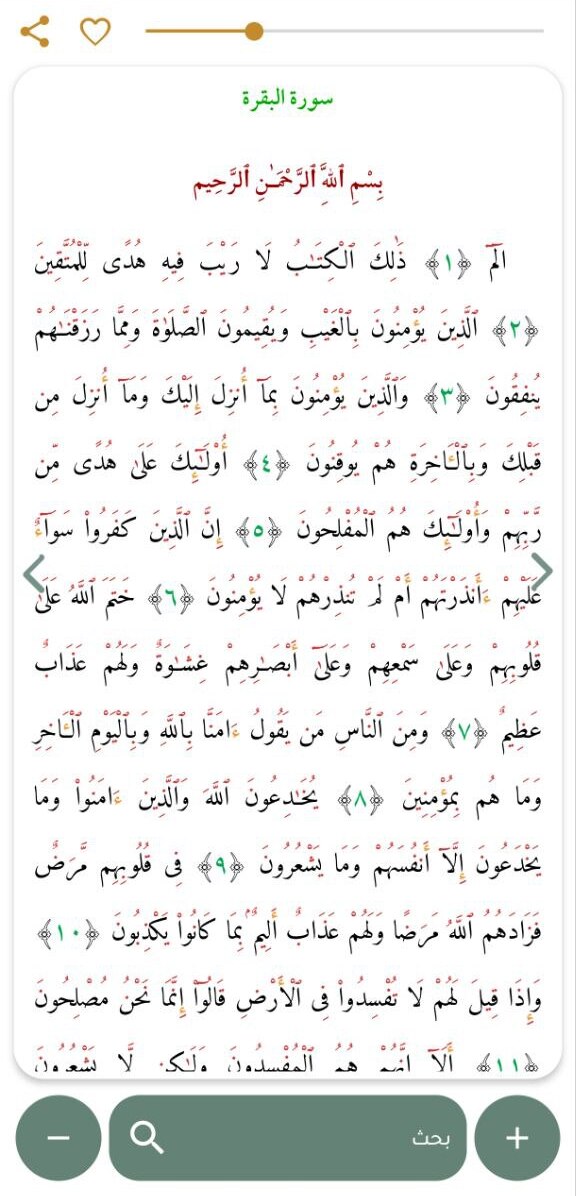 سورة البقرة
بِسْمِ ٱللَّهِ ٱلرَّحْمَـٰنِ ٱلرَّحِيم
الٓمٓ ﴿١﴾ ذَٰلِكَ ٱلْكِتَـٰبُ لَا رَيْبَ فِيهِ هُدًى لِّلْمُتَّقِينَ
﴿٢﴾ ٱلَّذِينَ يُؤْمِنُونَ بِٱلْغَيْبِ وَيُقِيمُونَ ٱلصَّلَوٰةَ وَمِمَّا رَزَقْنَـٰهُمْ
يُنفِقُونَ ﴿٣﴾ وَٱلَّذِينَ يُؤْمِنُونَ بِمَآ أُنزِلَ إِلَيْكَ وَمَآ أُنزِلَ مِن
قَبْلِكَ وَبِٱلْـَٔاخِرَةِ هُمْ يُوقِنُونَ ﴿٤﴾ أُو۟لَـٰٓئِكَ عَلَىٰ هُدًى مِّن
رَّبِّهِمْ وَأُو۟لَـٰٓئِكَ هُمُ ٱلْمُفْلِحُونَ ﴿٥﴾ إِنَّ ٱلَّذِينَ كَفَرُوا۟ سَوَآءٌ
عَلَيْهِمْ ءَأَنذَرْتَهُمْ أَمْ لَمْ تُنذِرْهُمْ لَا يُؤْمِنُونَ ﴿٦﴾ خَتَمَ ٱللَّهُ عَلَىٰ
قُلُوبِهِمْ وَعَلَىٰ سَمْعِهِمْ وَعَلَىٰٓ أَبْصَـٰرِهِمْ غِشَـٰوَةٌ وَلَهُمْ عَذَابٌ
عَظِيمٌ ﴿٧﴾ وَمِنَ ٱلنَّاسِ مَن يَقُولُ ءَامَنَّا بِٱللَّهِ وَبِٱلْيَوْمِ ٱلْـَٔاخِرِ
وَمَا هُم بِمُؤْمِنِينَ ﴿٨﴾ يُخَـٰدِعُونَ ٱللَّهَ وَٱلَّذِينَ ءَامَنُوا۟ وَمَا
يَخْدَعُونَ إِلَّآ أَنفُسَهُمْ وَمَا يَشْعُرُونَ ﴿٩﴾ فِى قُلُوبِهِم مَّرَضٌ
فَزَادَهُمُ ٱللَّهُ مَرَضًا وَلَهُمْ عَذَابٌ أَلِيمٌۢ بِمَا كَانُوا۟ يَكْذِبُونَ ﴿١٠﴾
وَإِذَا قِيلَ لَهُمْ لَا تُفْسِدُوا۟ فِى ٱلْأَرْضِ قَالُوٓا۟ إِنَّمَا نَحْنُ مُصْلِحُونَ
﴿١١﴾ أَلَآ إِنَّهُمْ هُمُ ٱلْمُفْسِدُونَ وَلَـٰكِن لَّا يَشْعُرُونَ
بحث